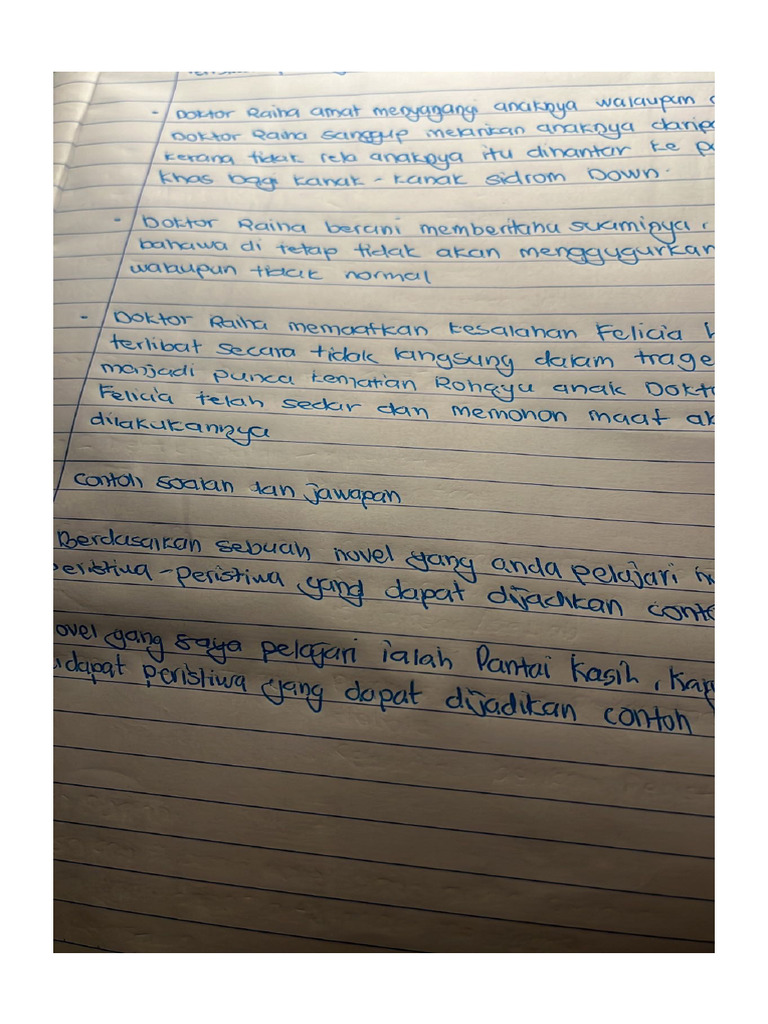 - Doktor Raiha amat menyayangi anaknya walaupun
Doktor Raiha sanggup melarikan anaknya
kerana tidak rela anaknya itu dihantar ke
khas bagi kanak-kanak sidrom Down.
- Doktor Raiha berani memberitahu suaminya,
bahawa di tetap tidak akan menggugurkan
walaupun tidak normal
- Doktor Raiha memaafkan kesalahan Felicia
terlibat secara tidak langsung dalam
manjadi punca kematian Rongyu anak
Felicia telah sedar dan memohon maaf
dilakukannya
Contoh soalan dan jawapan
Berdasarkan sebuah novel yang anda pelajari
peristiwa-peristiwa yang dapat dijadikan
yang saya pelajari ialah Pantai Kasih,
peristiwa yang dapat dijadikan contoh